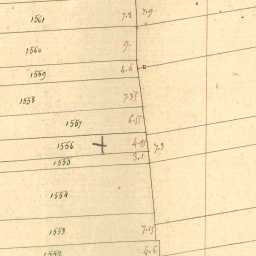 1561 7.2 7.9
1560 9.
1559 4.4
1558 7.35
1557 6.55
1556 7.3
1555 3.1
1554
1553 7.15
1552 4.6